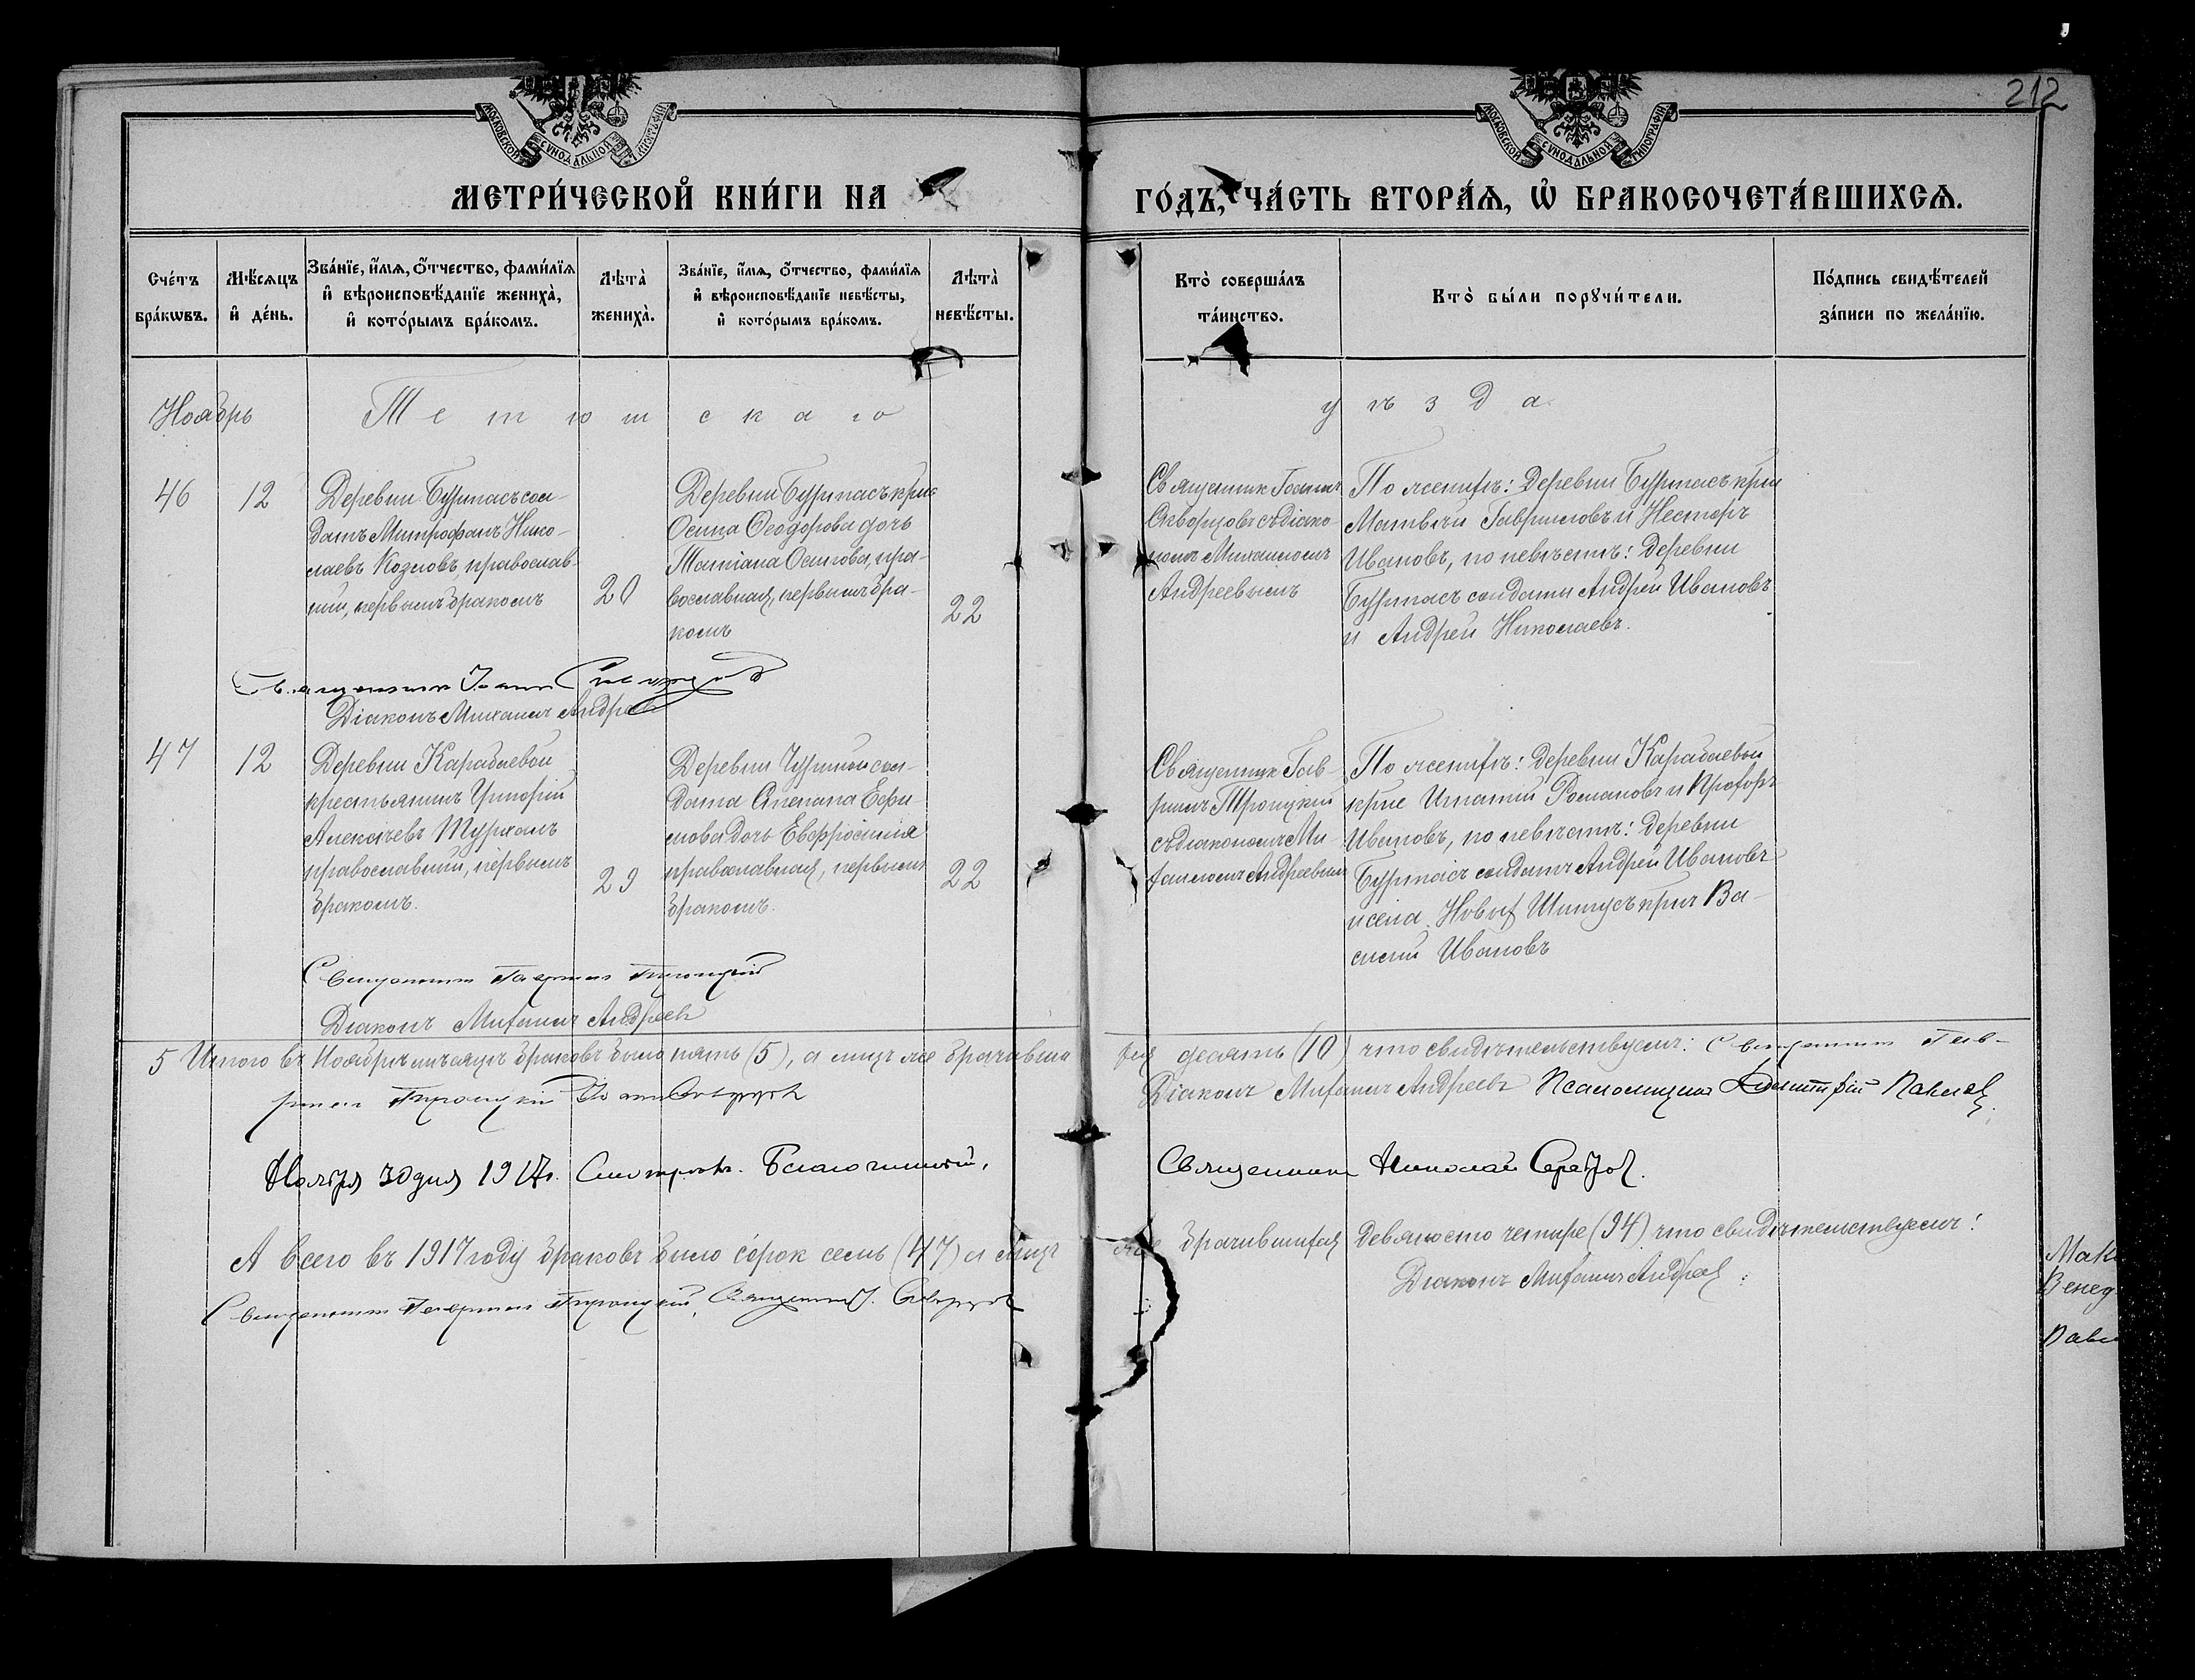 212
МОСКОВСКОЙ СѴНОДАЛЬНОЙ ТИПОГРАФІИ
МОСКОВСКОЙ СѴНОДАЛЬНОЙ ТИПОГРАФІИ
МЕТРИ́ЧЕСКОЙ КНИ́ГИ НА
ГО́ДЪ, ЧА́СТЬ ВТОРА́Ѧ, Ѽ БРАКОСОЧЕТА́ВШИХСѦ.
Сче́тъ бра́кѡвъ.
Мѣ́сѧцъ и҆ де́нь.
Зва́нїе, и҆́мѧ, ѻ҆́тчество, фами́лїѧ
и҆ вѣроисповѣ́данїе жениха̀,
и҆ кото́рымъ бра́комъ.
Лѣта̀ жениха̀.
Зва́нїе, и҆́мѧ, ѻ҆́тчество, фами́лїѧ
и҆ вѣроисповѣ́данїе невѣ́сты,
и҆ кото́рымъ бра́комъ.
Лѣта̀ невѣ́сты.
Кто̀ соверша́лъ
та́инство.
Кто̀ бы́ли порꙋчи́тели.
По́дпись свидѣ́телей
за́писи по жела́нїю.
Ноябрь
Тетюшскаго
уѣзда
46
12
Деревни Буртасъ сол-
датъ Митрофанъ Нико-
лаевъ Козловъ, православ-
ный, первымъ бракомъ
20
Деревни Буртасъ кр-на
Осипа Ѳеодорова дочь
Татіана Осипова, пра-
вославная, первымъ бра-
комъ
22
Священникъ Іоаннъ
Скворцовъ съ діако-
номъ Михаиломъ
Андреевымъ
По женихѣ: Деревни Буртасъ кр-не
Матвѣй Гавриловъ и Несторъ
Ивановъ, по невѣстѣ: Деревни
Буртасъ солдаты Андрей Ивановъ
и Андрей Николаевъ.
Священникъ Іоаннъ Скворцовъ
Діаконъ Михаилъ Андреевъ
47
12
Деревни Карабаевой
крестьянинъ Григорій
Алексѣевъ
православный, первымъ
бракомъ.
29
Деревни сол-
дата Степана
дочь Евфросинія
православная, первымъ
бракомъ.
22
Священникъ Гав-
риилъ Троицкій
съ діакономъ Ми-
хаиломъ Андреевымъ
По женихѣ: Деревни Карабаевой
кр-не Игнатій Романовъ и Прохоръ
Ивановъ, по невѣстѣ: Деревни
Буртасъ солдатъ Андрей Ивановъ
и села Новыхъ кр-нъ Ва-
силій Ивановъ
Священникъ Гавриилъ Троицкій
Діаконъ Михаилъ Андреевъ
5 Итого въ Ноябрѣ мѣсяцѣ браковъ было пять (5), а лицъ же брачивших
ся десять (10) что свидѣтельствуемъ: Священникъ Гав-
риилъ Троицкій Іоаннъ Скворцовъ
Діаконъ Михаилъ Андреевъ Псаломщикъ Димитрій Павлов.
Ноября 30 дня 1917 г. Смотрѣлъ. Благочинный,
Священникъ Николай
А всего въ 1917 году браковъ было сорок семь (47) а лицъ
же брачившихся девяносто четыре (94) что свидѣтельствуемъ:
Священникъ Гавриилъ Троицкій, Священникъ І. Скворцовъ
Діаконъ Михаилъ Андреев